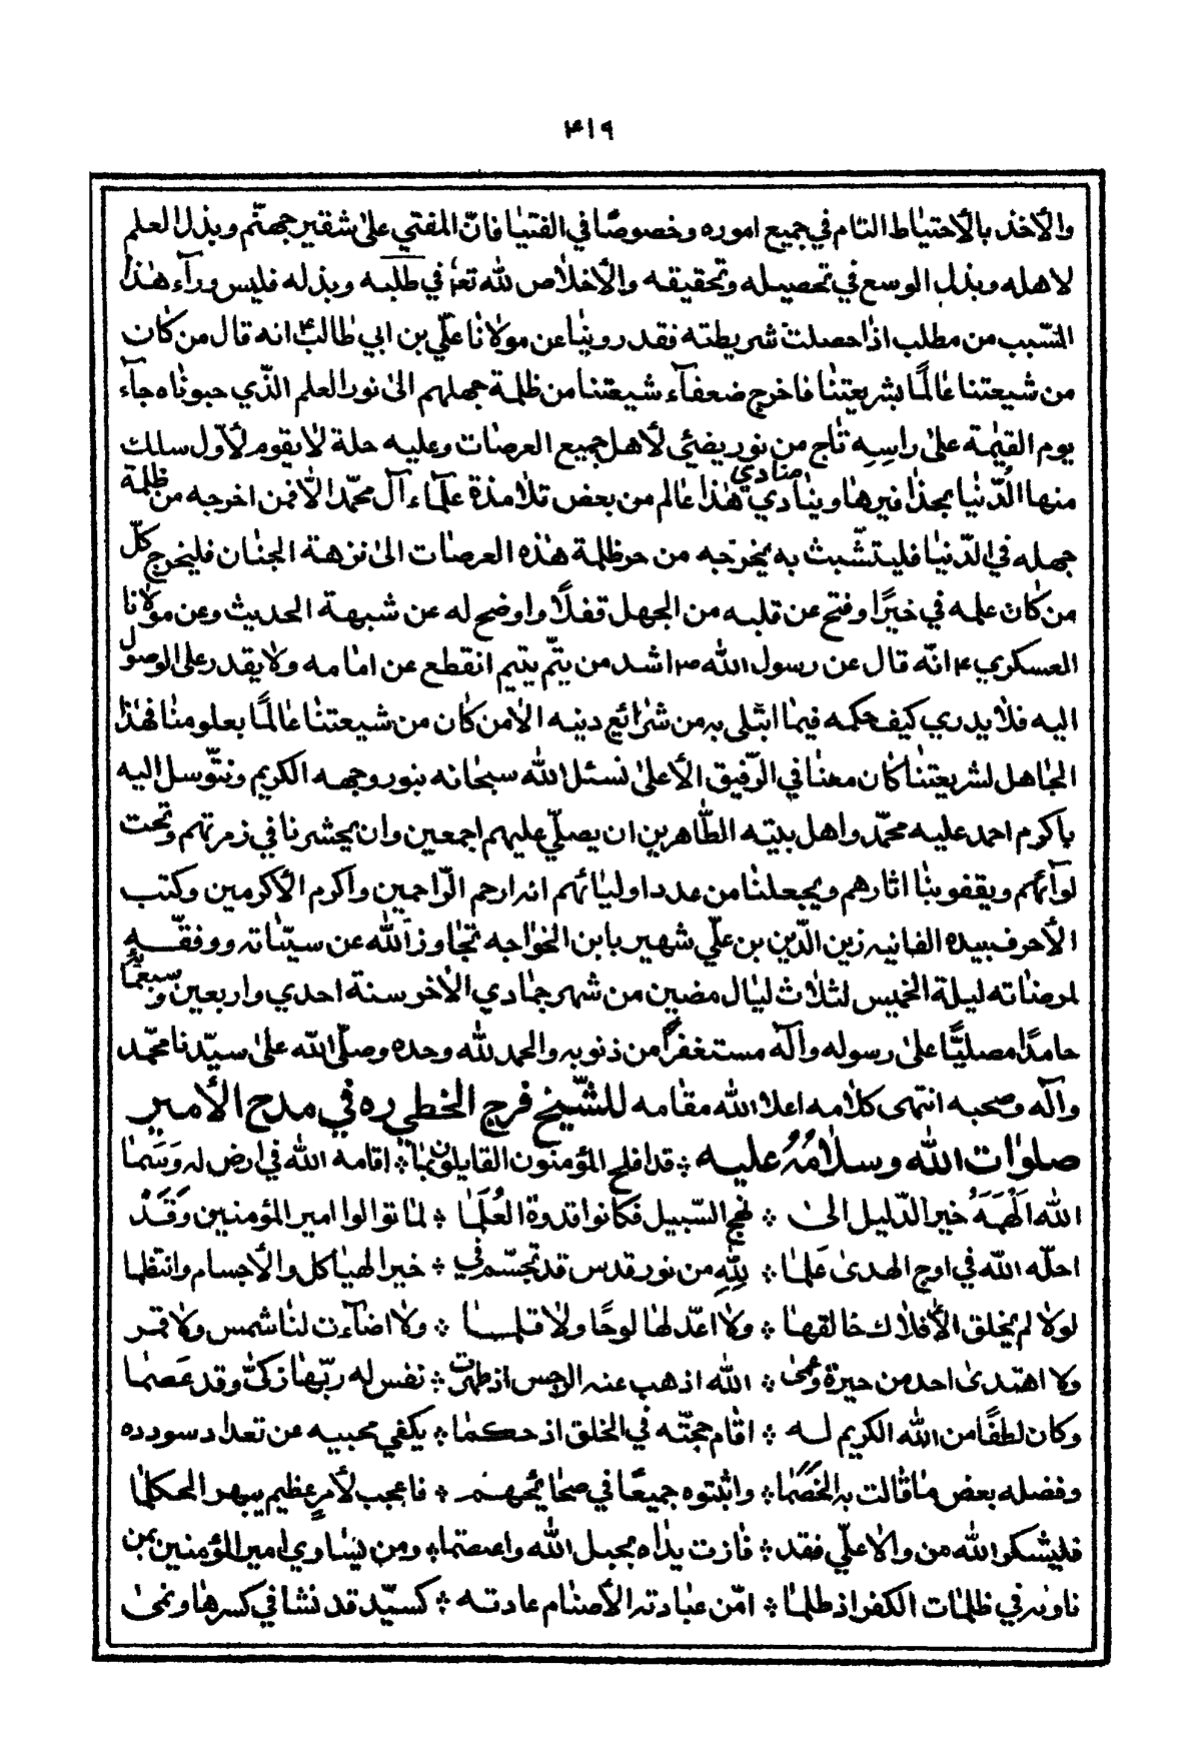 ۴۱۹
والأخذ بالأحتياط التام في جميع اموره وخصوصًا في الفتيا فانّ المفتي على شفير جهنّم وبذل العلم
لاهله وبذل الوسع في تحصيله وتحقيقه والأخلاص لله تع في طلبه وبذله فليس ورآء هذا
السّبب من مطلب اذا حصلت شريطته فقد روينا عن مولانا عليّ بن ابي طالبؑ انه قال من كان
من شيعتنا عالمًا بشريعتنا فاخرج ضعفآء شيعتنا من ظلمة جهلهم الى نور العلم الّذي حبوناه جآء
يوم القيمة على راسِهِ تاج من نور يضئي لأهل جميع العرصات وعليه حلة لا يقوم لأوّل سلك
منها الدّنيا بحذافيرها وينادي منادي هذا عالم من بعض تلامذة علمآء آل محمّد الا فمن اخرجه من ظلمة
جهله في الدّنيا فليتشّبث به يخرجه من حر ظلمة هذه العرصات الى نزهة الجنان فليخرج كلّ
من كان علمه في خيرًا وفتح عن قلبه من الجهل قفلًا واوضح له عن شبهة الحديث وعن مولانا
العسكري ۴ انّه قال عن رسول الله ص اشد من يتّم يتيم انقطع عن امامه ولا يقدر على الوصول
اليه فلا يدري كيف حكمه فيما ابتلى به من شرائع دينه الا من كان من شيعتنا عالمًا بعلومنا فهذا
الجاهل لشريعتنا كان معنا في الرّفيق الأعلى نسئل الله سبحانه بنور وجهه الكريم ونتّوسل اليه
باكرم احمد عليه محمّد واهل بيته الطّاهرين ان يصلّي عليهم اجمعين وان يحشرنا في زمرتهم وتحت
لوآئهم ويقفو بنا اثارهم ويجعلنا من عدد اوليائهم انه ارحم الرّاحمين واكرم الأكرمين وكتب
الأحرف بيده الفانيه زين الدّين بن عليّ شهير بابن الخواجه تجاوز الله عن سيّئاته ووفقّه
لمرضاته ليلة الخميس لثلاث ليال مضين من شهر جمادي الأخر سنة احدي واربعين وسبعمأئة
حامدًا مصليًا على رسوله وآله مستغفرًا من ذنوبه والحمد لله وحده وصلّى الله على سيّدنا محمّد
وآله وصحبه انتهى كلامه اعلا الله مقامه للشّيخ فرج الخطي ره في مدح الأمير
صلوات الله وسلامُهُ عليه ⁘ قد افلح المؤمنون القايلون بما ⁘ اقامه الله في ارض له وَسَمَا
الله اَلْهَمَهُ خير الدّليل الى ⁘ نهج السّبيل فكانوا قدوة العُلَمَا ⁘ لما توالوا امير المؤمنين وَقَدْ
احلّه الله في اوج الهدى عَلَما ⁘ لِلّهِ من نور قدس قد تجسّم في ⁘ خير الهياكل والأجسام وانتظما
لولا لم يخلق الأفلاك خالقها ⁘ ولا اعدّ لها لوحًا ولا قلما ⁘ ولا اضآءت لنا شمس ولا قمر
ولا اهتدى احد من حيرة وعمى ⁘ الله اذهب عنه الرجس اذ طهرت ⁘ نفس له ربّها زكىّ وقد عَصَما
وكان لطفًا من الله الكريم له ⁘ اقام حجتّه في الخلق اذ حكما ⁘ يكفي محبيه عن تعداد سودده
وفضله بعض ما قالت به الخُصَما ⁘ واثبتوه جميعًا في صحايحهم ⁘ فاعجب لأمرٍ عظيم يبهر الحكما
فليشكر الله من والا عليّ فقد ⁘ فازت يداه بحبل الله واعتصما ⁘ ومن يساوي امير المؤمنين بمن
ناويه في ظلمات الكفر اذ ظلما ⁘ امّن عبادته الأصنام عادته ⁘ كسيّد قد نشا في كسرها ونمى